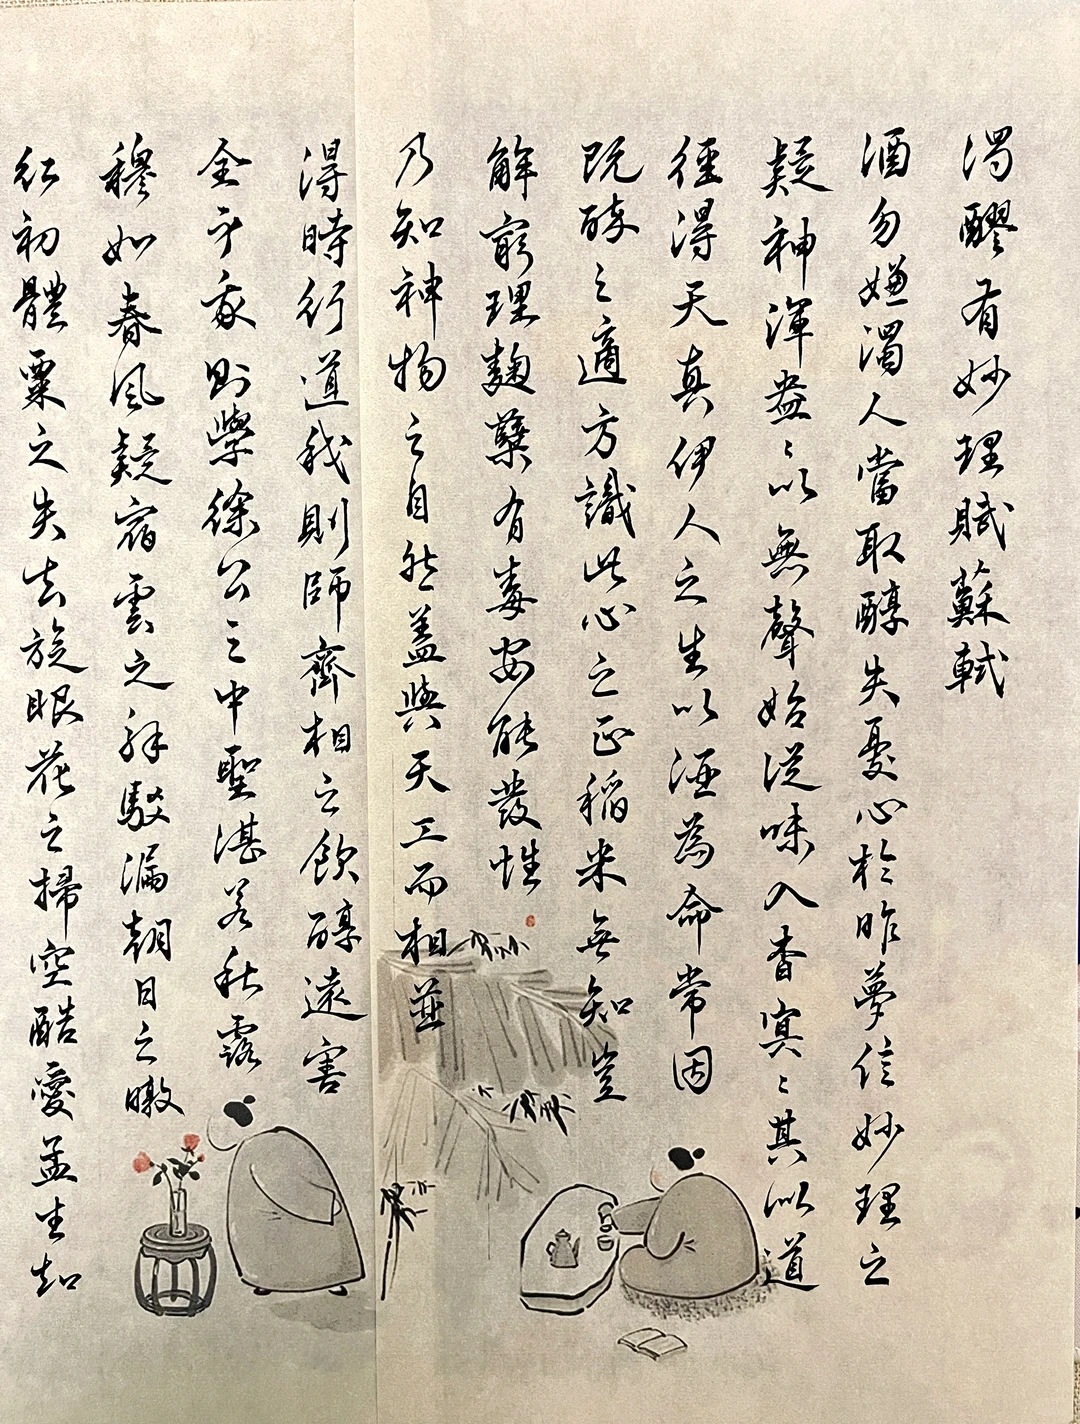 濁醪有妙理賦蘇軾
酒勿嫌濁人當取醇失憂心於昨夢信妙理之
凝神渾盎〻以無聲始從味入杳冥〻其似道
徑得天真伊人之生以酒為命常因
既醉之適方識此心之正稻米無知豈
解窮理麴糵有毒安能發性
乃知神物之自然蓋與天工而相並
得時行道我則師齊相之飲醇遠害
全身我則學徐公之中聖湛若秋露
穆如春風疑宿雲之解駁漏朝日之暾
紅初體粟之失去旋眼花之掃空酷愛孟生知